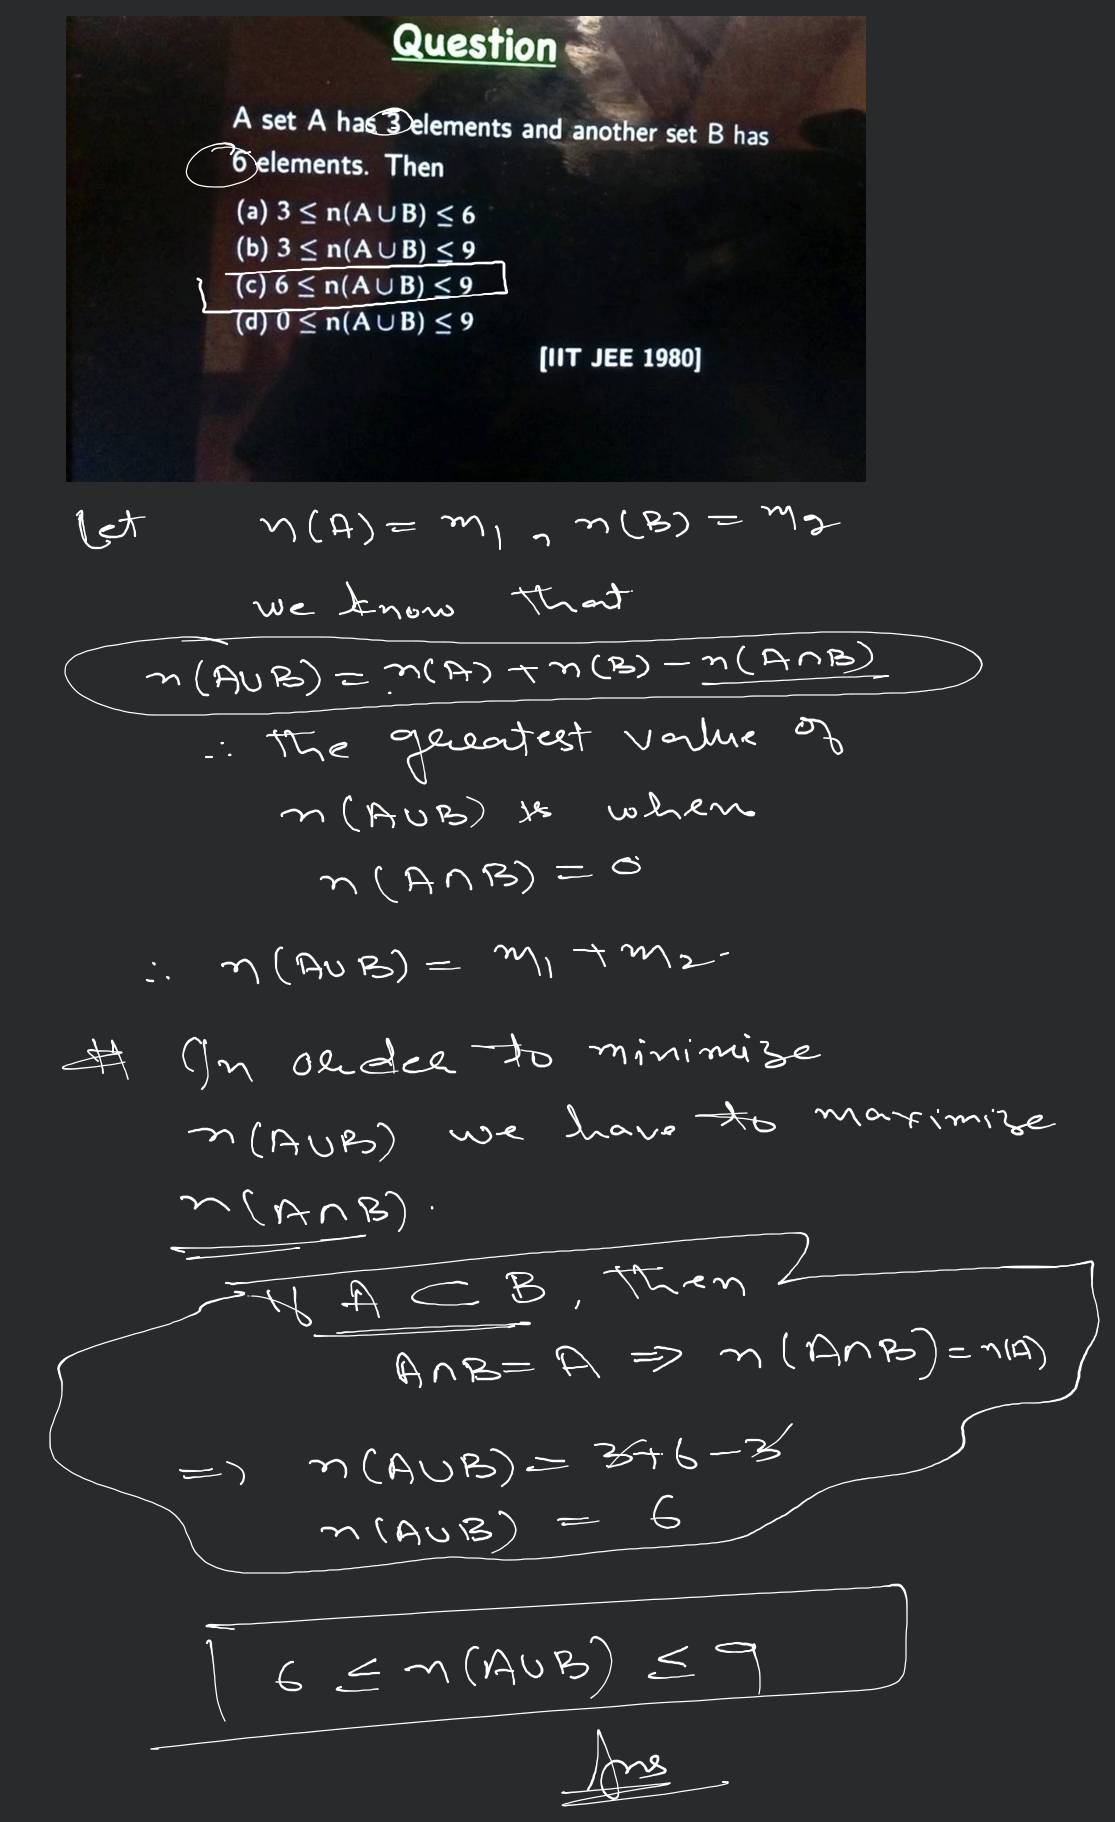 Question
A set A has 3 elements and another set B has
6 elements. Then
(a) 3 ≤ n(A∪B) ≤ 6
(b) 3 ≤ n(A∪B) ≤ 9
(c) 6 ≤ n(A∪B) ≤ 9
(d) 0 ≤ n(A∪B) ≤ 9
[IIT JEE 1980]
Let n(A) = m₁, n(B) = m₂
we know that
n(A∪B) = n(A) + n(B) – n(A∩B)
∴ the greatest value of
n(A∪B) is when
n(A∩B) = 0
∴ n(A∪B) = m₁ + m₂.
# In order to minimize
n(A∪B) we have to maximize
n(A∩B).
If A ⊂ B, then
A∩B = A ⇒ n(A∩B) = n(A)
⇒ n(A∪B) = 3+6–3
n(A∪B) = 6
6 ≤ n(A∪B) ≤ 9
Ans